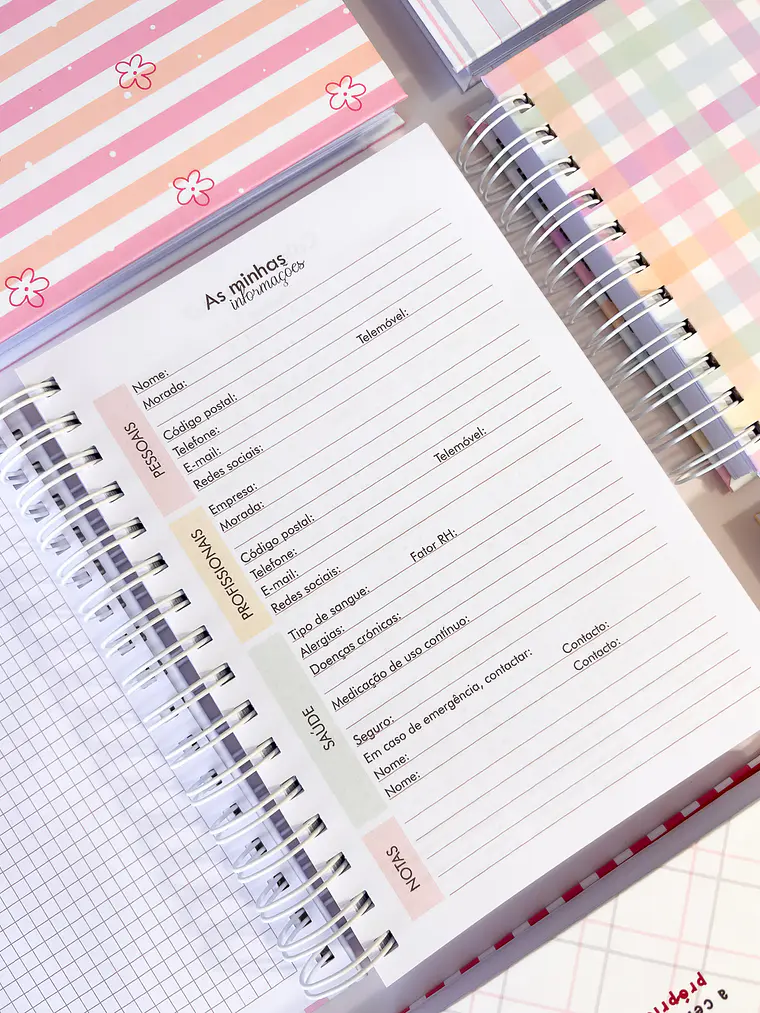 As minhas
informações
PESSOAIS
Nome:
Morada:
Código postal:
Telefone: Telemóvel:
E-mail:
Redes sociais:
PROFISSIONAIS
Empresa:
Morada:
Código postal:
Telefone: Telemóvel:
E-mail:
Redes sociais:
SAÚDE
Tipo de sangue: Fator RH:
Alergias:
Doenças crónicas:
Medicação de uso contínuo:
Seguro:
Em caso de emergência, contactar:
Nome: Contacto:
Nome: Contacto:
NOTAS